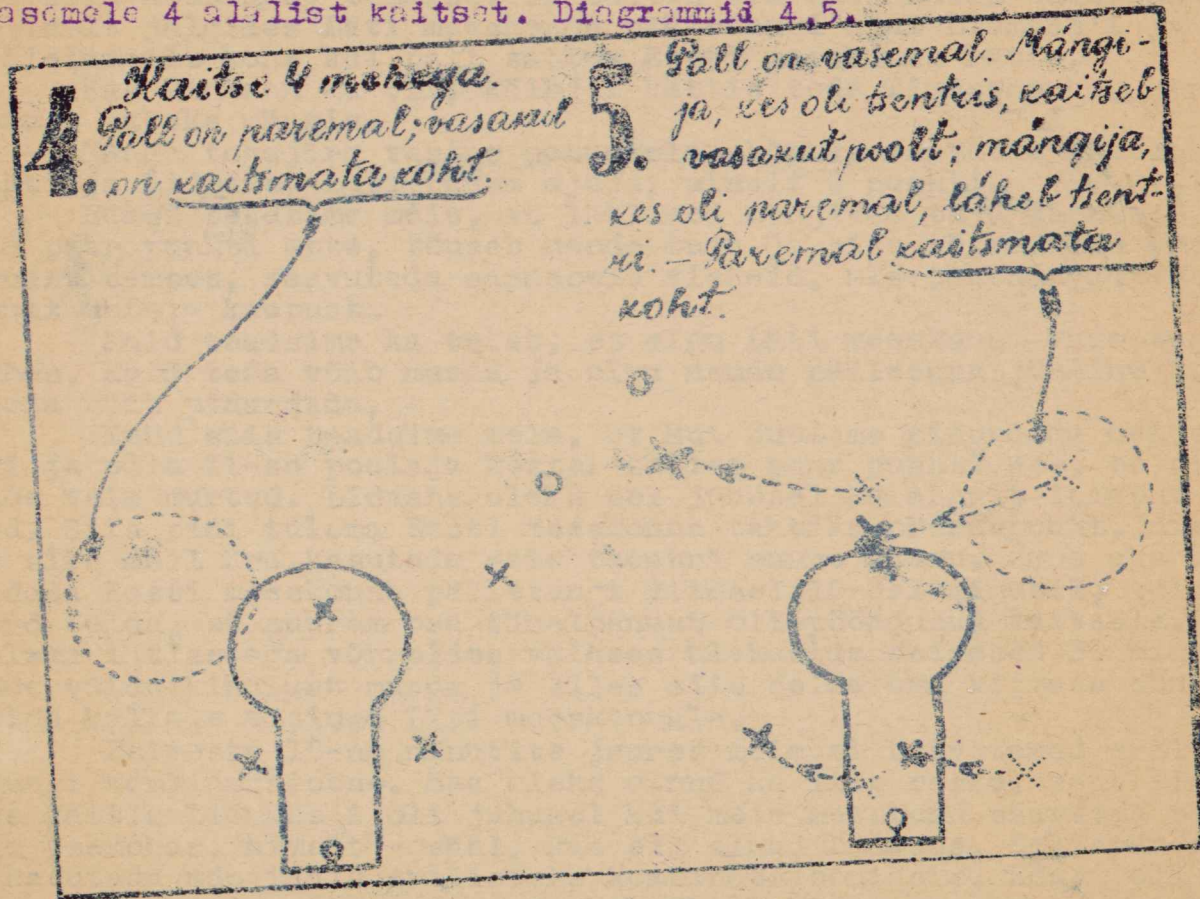 asemele 4 alalist kaitset. Diagrammid 4,5.
4. Kaitse 4 mehega.
Pall on paremal; vasakul
on kaitsmata koht.
5. Pall on vasemal. Mängi-
ja, kes oli tsentris, kaitseb
vasakut poolt; mängija,
kes oli paremal, läheb tsent-
ri. – Paremal kaitsmata
koht.